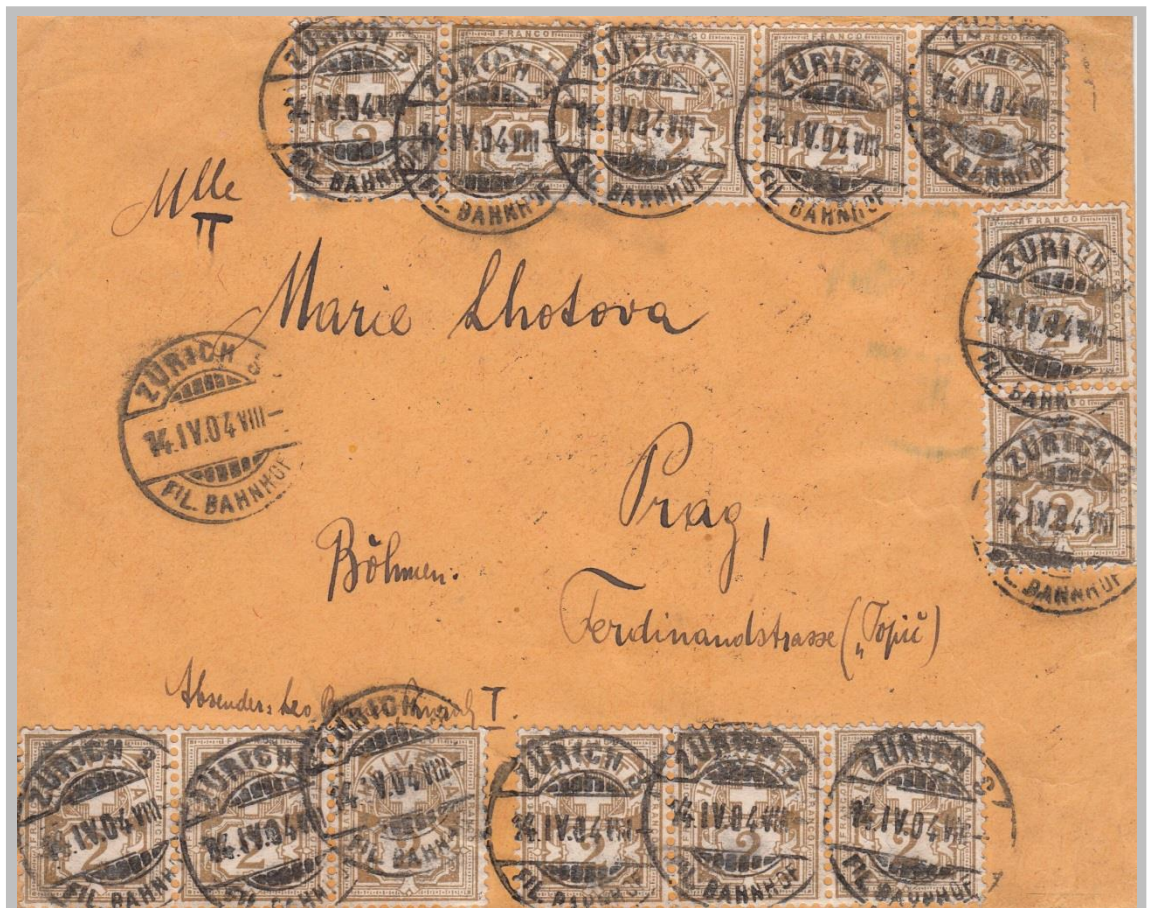 ZÜRICH 14.IV.04 VIII– FIL. BAHNHOF
ZÜRICH 14.IV.04 VIII– FIL. BAHNHOF
ZÜRICH 14.IV.04 VIII– FIL. BAHNHOF
ZÜRICH 14.IV.04 VIII– FIL. BAHNHOF
ZÜRICH 14.IV.04 VIII– FIL. BAHNHOF
FRANCO HELVETIA 2
Mlle
Marie Lhotova
FRANCO 2
ZÜRICH 14.IV.04 VIII– FIL. BAHNHOF
ZÜRICH
14.IV.04 VIII–
FIL. BAHNHOF
2
ZÜRICH 14.IV.04 VIII– FIL. BAHNHOF
Prag!
Böhmen.
Ferdinandstrasse („Topič)
Absender: Leo I.
ZÜRICH 14.IV.04 VIII– FIL. BAHNHOF
ZÜRICH 14.IV.04 VIII– FIL. BAHNHOF
ZÜRICH 14.IV.04 VIII– FIL. BAHNHOF
ZÜRICH 14.IV.04 VIII– FIL. BAHNHOF
ZÜRICH 14.IV.04 VIII– FIL. BAHNHOF
ZÜRICH 14.IV.04 VIII– FIL. BAHNHOF
2 2 2 2 2 2